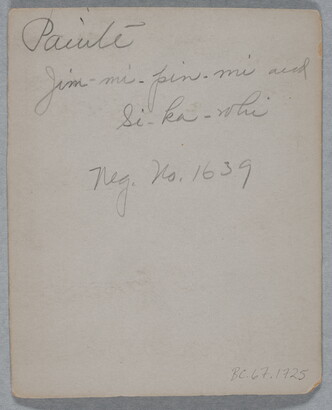 Paiute
Jim-mi-pin-mi and
Si-ka-whi
Neg. No. 1639
BC.67.1725